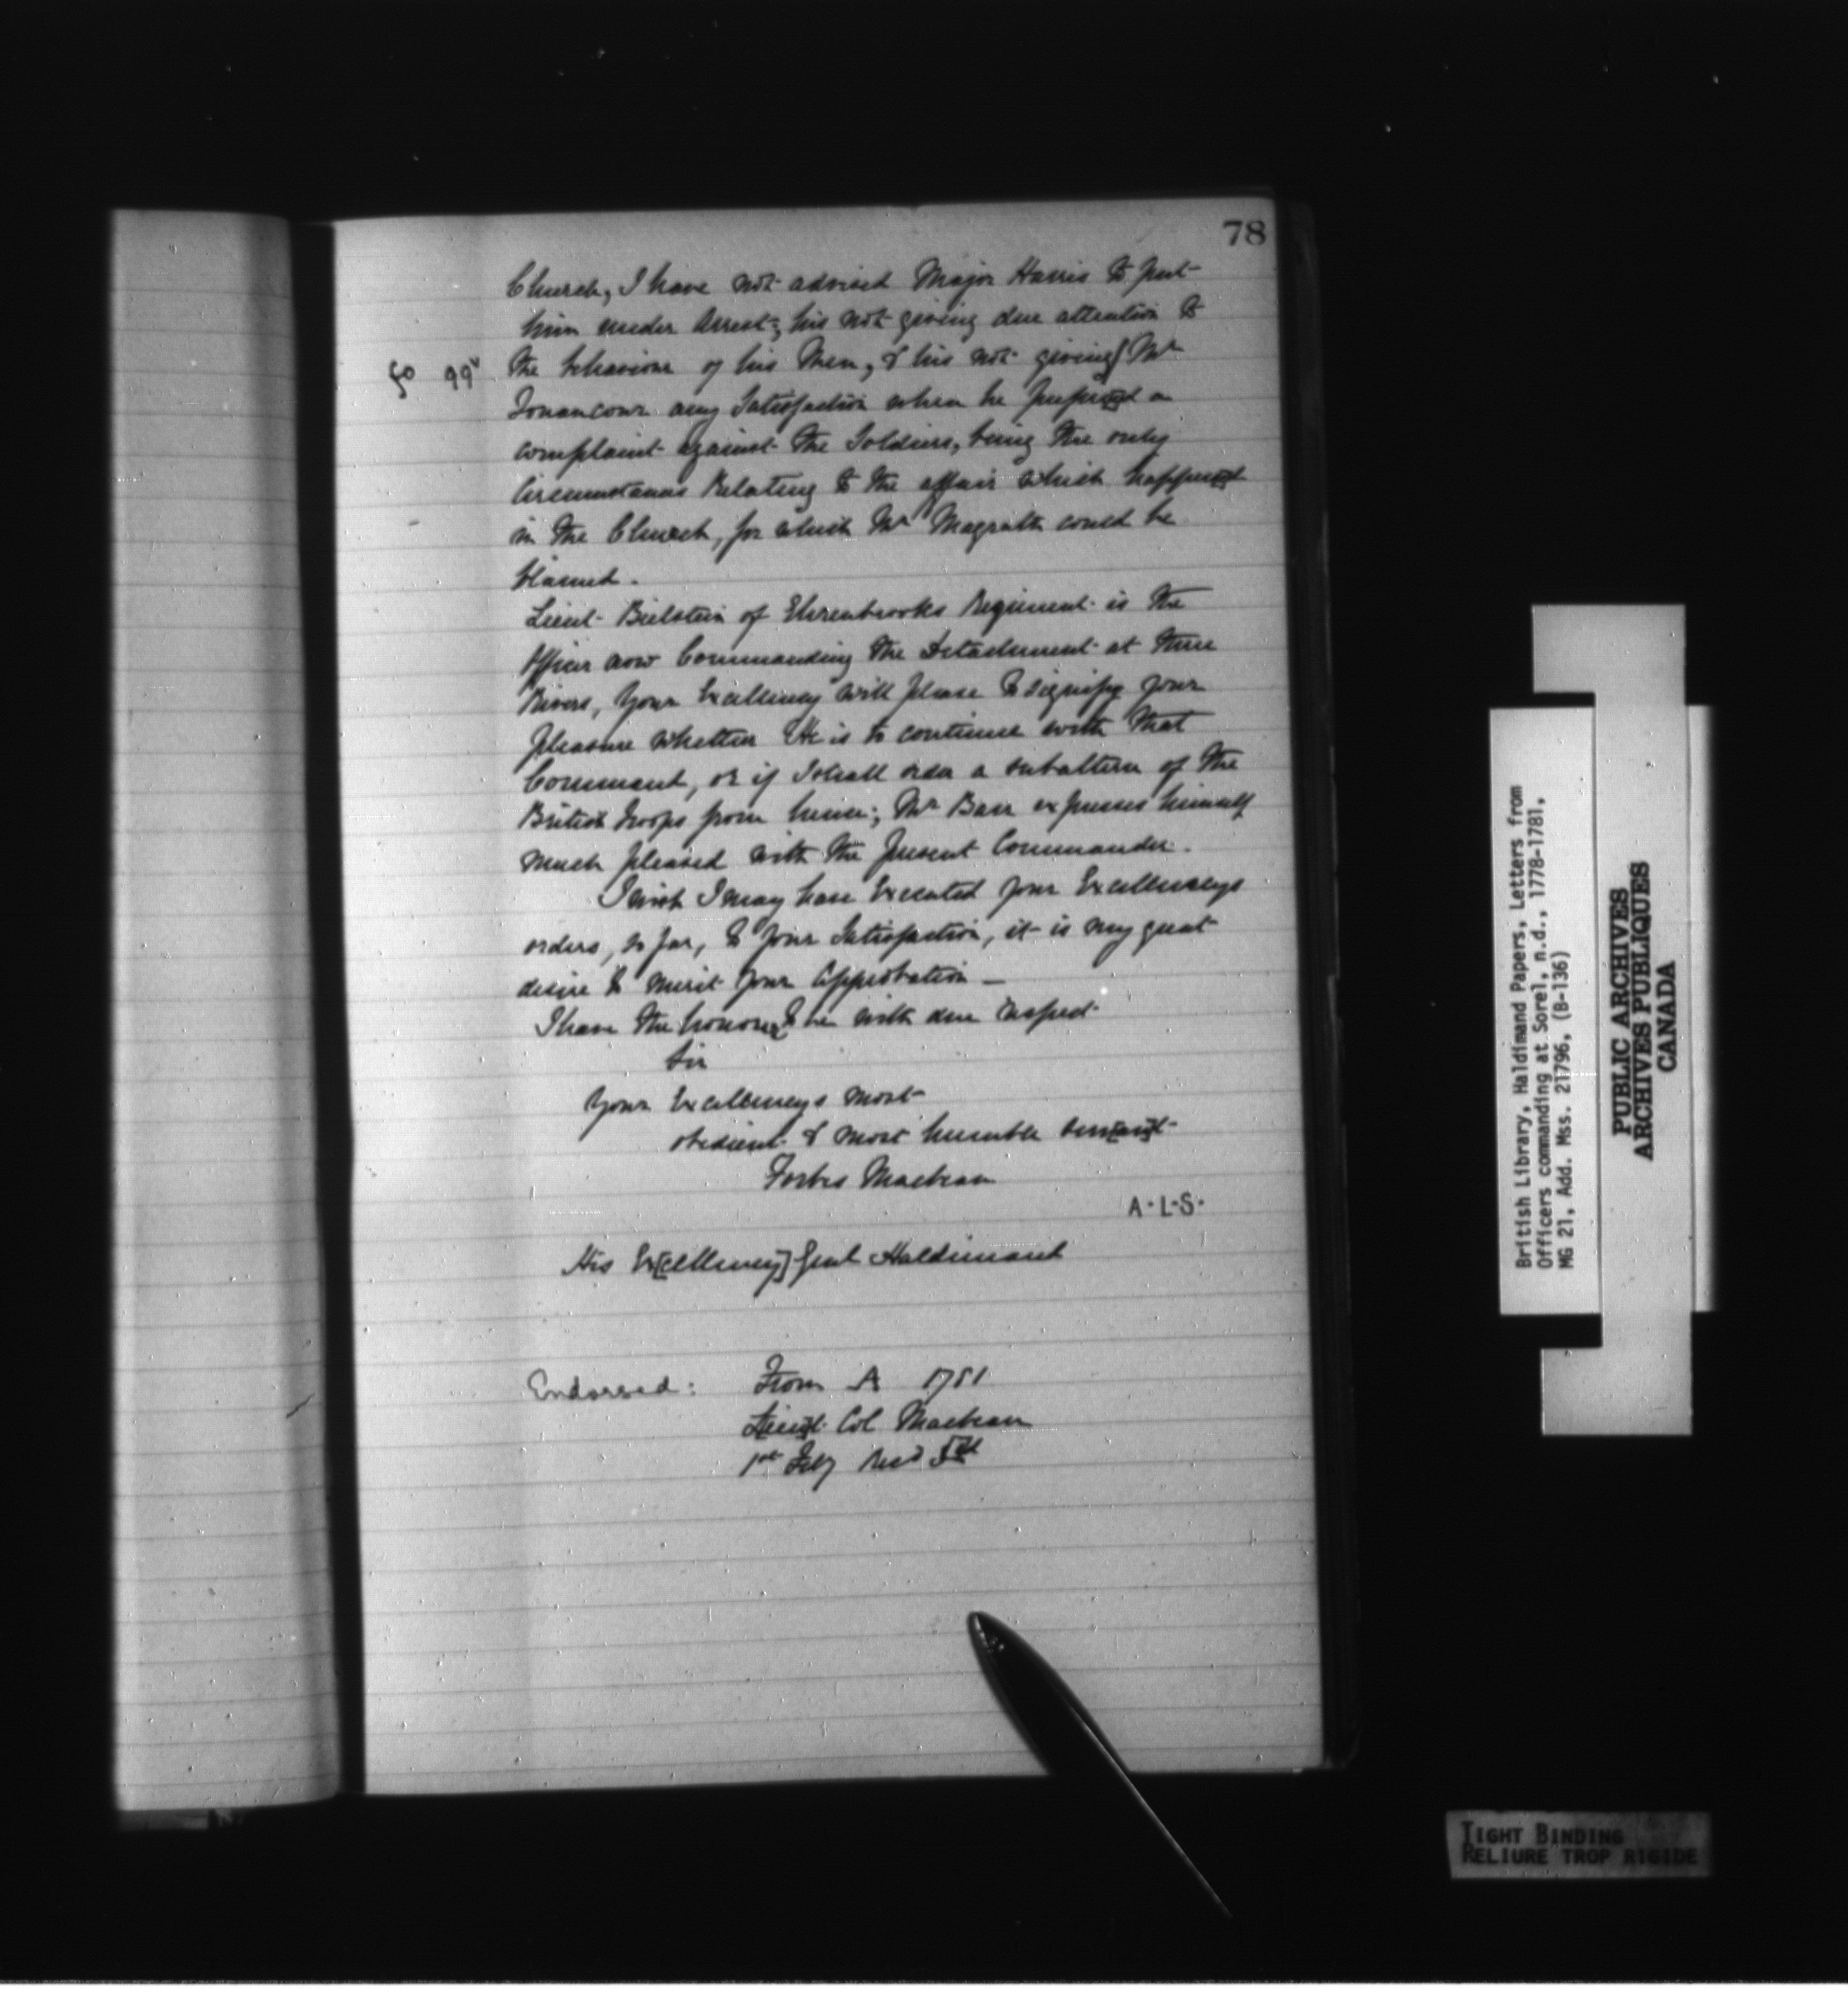 78
Church, I have not advised Major Harris to put
him under Arrest; his not giving due attention to
fo 99v the behaviour of his Men, & his not giving Mr
Tonancour any Satisfaction when he prefer[re]d a
complaint against the Soldiers, being the only
Circumstances Relating to the affair which happen[e]d
in the Church, for which Mr Magrath could be
blamed.
Lieut Bielstein of Ehrenbrooks Regiment is the
Officer now Commanding the Detachment at Three
Rivers, Your Excellency will please to signify your
pleasure whether He is to continue with that
Command, or if I shall order a subaltern of the
British troops from hence; Mr Barr expresses himself
much pleased with the present Commander.
I wish I may have Executed your Excellencys
orders, so far, to your Satisfaction, it is my great
desire to merit your Approbation —
I have the honour to be with due respect
Sir
Your Excellencys most
obedient & most humble Ser[van]t
Forbes Macbean
A.L.S.
His Ex[cellency] Genl Haldimand
Endorsed: From A 1781
L[ieu]t Col Macbean
1st Feby Recd 5th
British Library, Haldimand Papers, Letters from
Officers commanding at Sorel, n.d., 1778-1781,
MG 21, Add. Mss. 21796, (B-136)
PUBLIC ARCHIVES
ARCHIVES PUBLIQUES
CANADA
TIGHT BINDING
RELIURE TROP RIGIDE